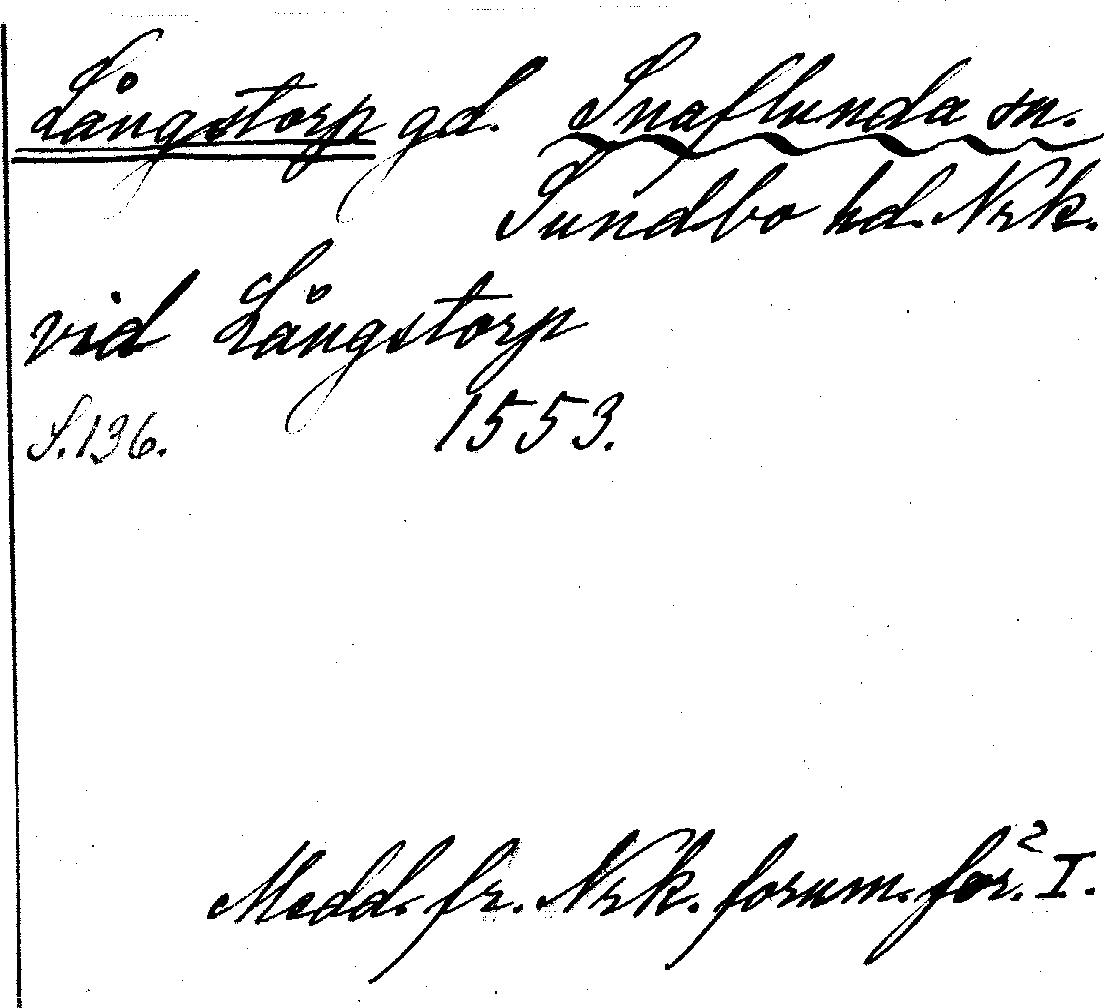 Långstorp gd. Snaflunda sn.
Sundbo hd. Nrk.
vid Långstorp
S. 136. 1553.
Medd. fr. Nrk. fornm. för. I.